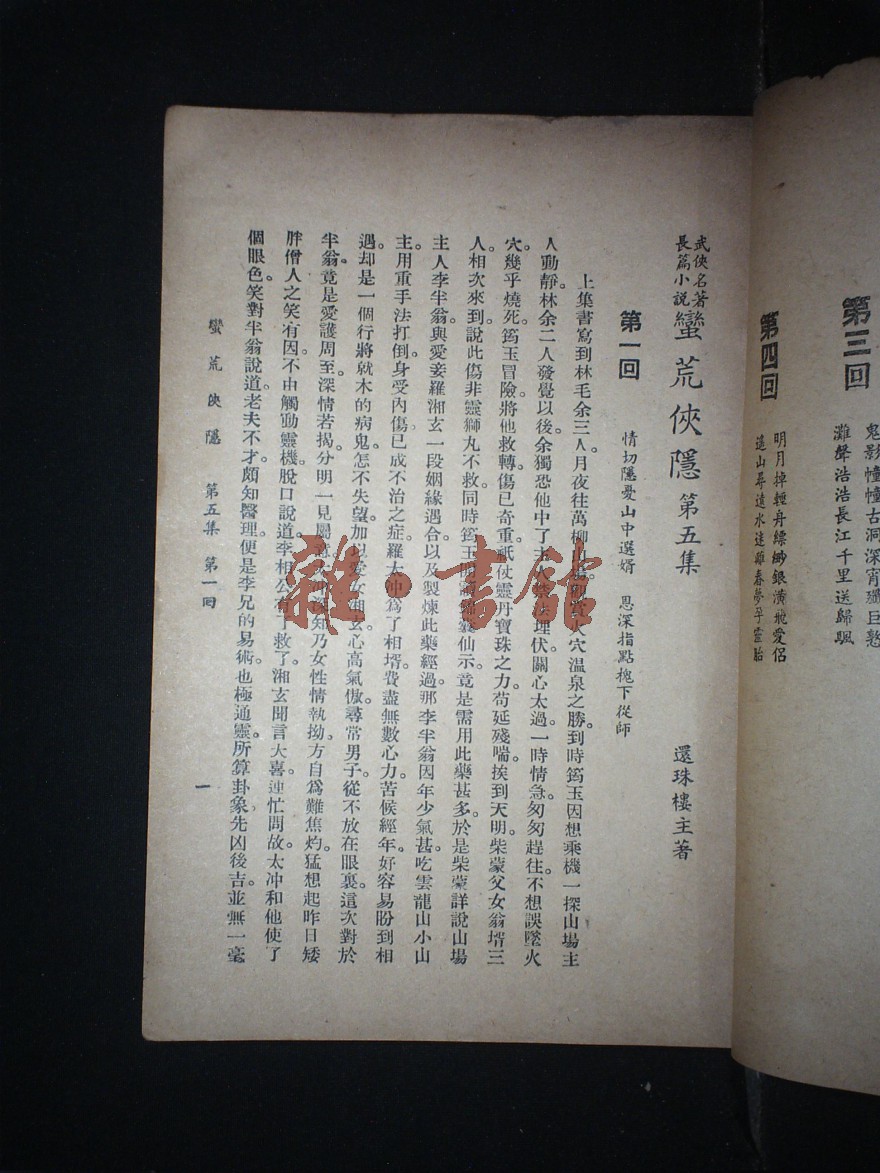 第三回
鬼影幢幢古洞深宵殲巨憝
灘聲浩浩長江千里送歸颿
第四回
明月掉輕舟縹緲銀潢飛愛侶
遠山尋遠水迷離春夢孕靈胎
武俠名著
長篇小說
蠻荒俠隱 第五集
還珠樓主著
第一回
情切隱憂山中選婿 恩深指點槐下從師
上集書寫到林毛余三人月夜往萬柳山場觀賞火穴溫泉之勝。到時筠玉因想乘機一探山場主
人動靜。林余二人發覺以後。余獨恐他中了主人禁法埋伏。關心太過。一時情急。匆匆趕往。不想誤墜火
穴。幾乎燒死。筠玉冒險將他救轉。傷已奇重。祇仗靈丹寶珠之力。苟延殘喘。挨到天明。柴蒙父女翁壻三
人。相次來到。說此傷非靈獅丸不救。同時筠玉開讀錦囊仙示。竟是需用此藥甚多。於是柴蒙詳說山場
主人李半翁與愛妾羅湘玄一段姻緣遇合。以及製煉此藥經過。那李半翁因年少氣甚。吃雲龍山小山
主。用重手法打倒。身受內傷。已成不治之症。羅太冲爲了相壻。費盡無數心力。苦候經年。好容易盼到相
遇。却是一個行將就木的病鬼。怎不失望。加以愛女湘玄。心高氣傲。尋常男子。從不放在眼裏。這次對於
半翁。竟是愛護周至。深情若揭。分明一見屬意。太冲深知乃女性情執拗。方自爲難焦灼。猛想起昨日矮
胖僧人之笑有因。不由觸動靈機。脫口說道。李相公有了救了。湘玄聞言大喜。連忙問故。太冲和他使了
個眼色。笑對半翁說道。老夫不才。頗知醫理。便是李兄的易術。也極通靈。所算卦象先凶後吉。並無一毫
蠻荒俠隱 第五集 第一回
一
雜·書館